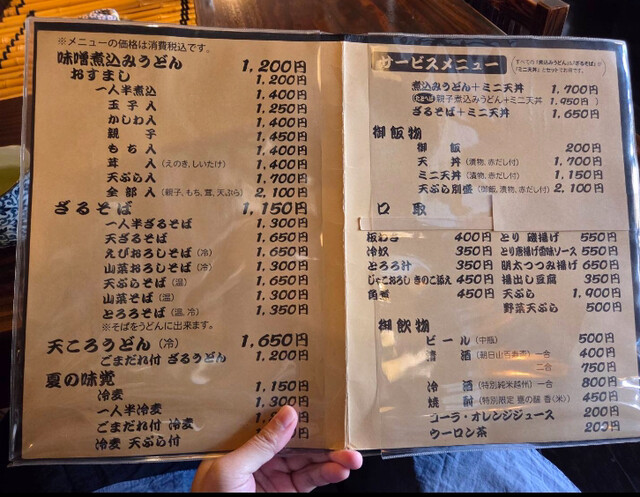 ※メニューの価格は消費税込です。
味噌煮込みうどん 1,200円
おすまし 1,200円
一人半煮込 1,400円
玉子入 1,250円
かしわ入 1,400円
親子 1,450円
もち入 1,400円
茸入(えのき,しいたけ) 1,400円
天ぷら入 1,700円
全部入(親子,もち,茸,天ぷら) 2,100円
ざるそば 1,150円
一人半ざるそば 1,300円
天ざるそば 1,650円
えびおろしそば(冷) 1,650円
山菜おろしそば(冷) 1,300円
天ぷらそば(温) 1,650円
山菜そば(温) 1,300円
とろろそば(温,冷) 1,350円
※そばをうどんに出来ます。
天ころうどん(冷) 1,650円
ごまだれ付 ざるうどん 1,200円
夏の味覚
冷麦 1,150円
一人半冷麦 1,300円
ごまだれ付 冷麦
冷麦 天ぷら付
サービスメニュー
すべての「煮込みうどん」と「ざるそば」が
「ミニ天丼」とセットでお得です。
煮込みうどん+ミニ天丼 1,700円
親子煮込みうどん+ミニ天丼 1,950円
ざるそば+ミニ天丼 1,650円
御飯物
御飯 200円
天丼(漬物,赤だし付) 1,700円
ミニ天丼(漬物,赤だし付) 1,150円
天ぷら別盛(御飯,漬物,赤だし付) 2,100円
口取
板わさ 400円
冷奴 350円
とろろ汁 350円
じゃこおろし きのこ添え 450円
角煮 450円
とり磯揚げ 550円
とり唐揚げ香味ソース 550円
明太つつみ揚げ 650円
揚出し豆腐 350円
天ぷら 1,900円
野菜天ぷら 500円
御飲物
ビール(中瓶) 500円
清酒(朝日山百寿盃)一合 400円
二合 750円
冷酒(特別純米越州)一合 800円
焼酎(特別限定 甕の醸 香(米)) 450円
コーラ・オレンジジュース 200円
ウーロン茶 200円